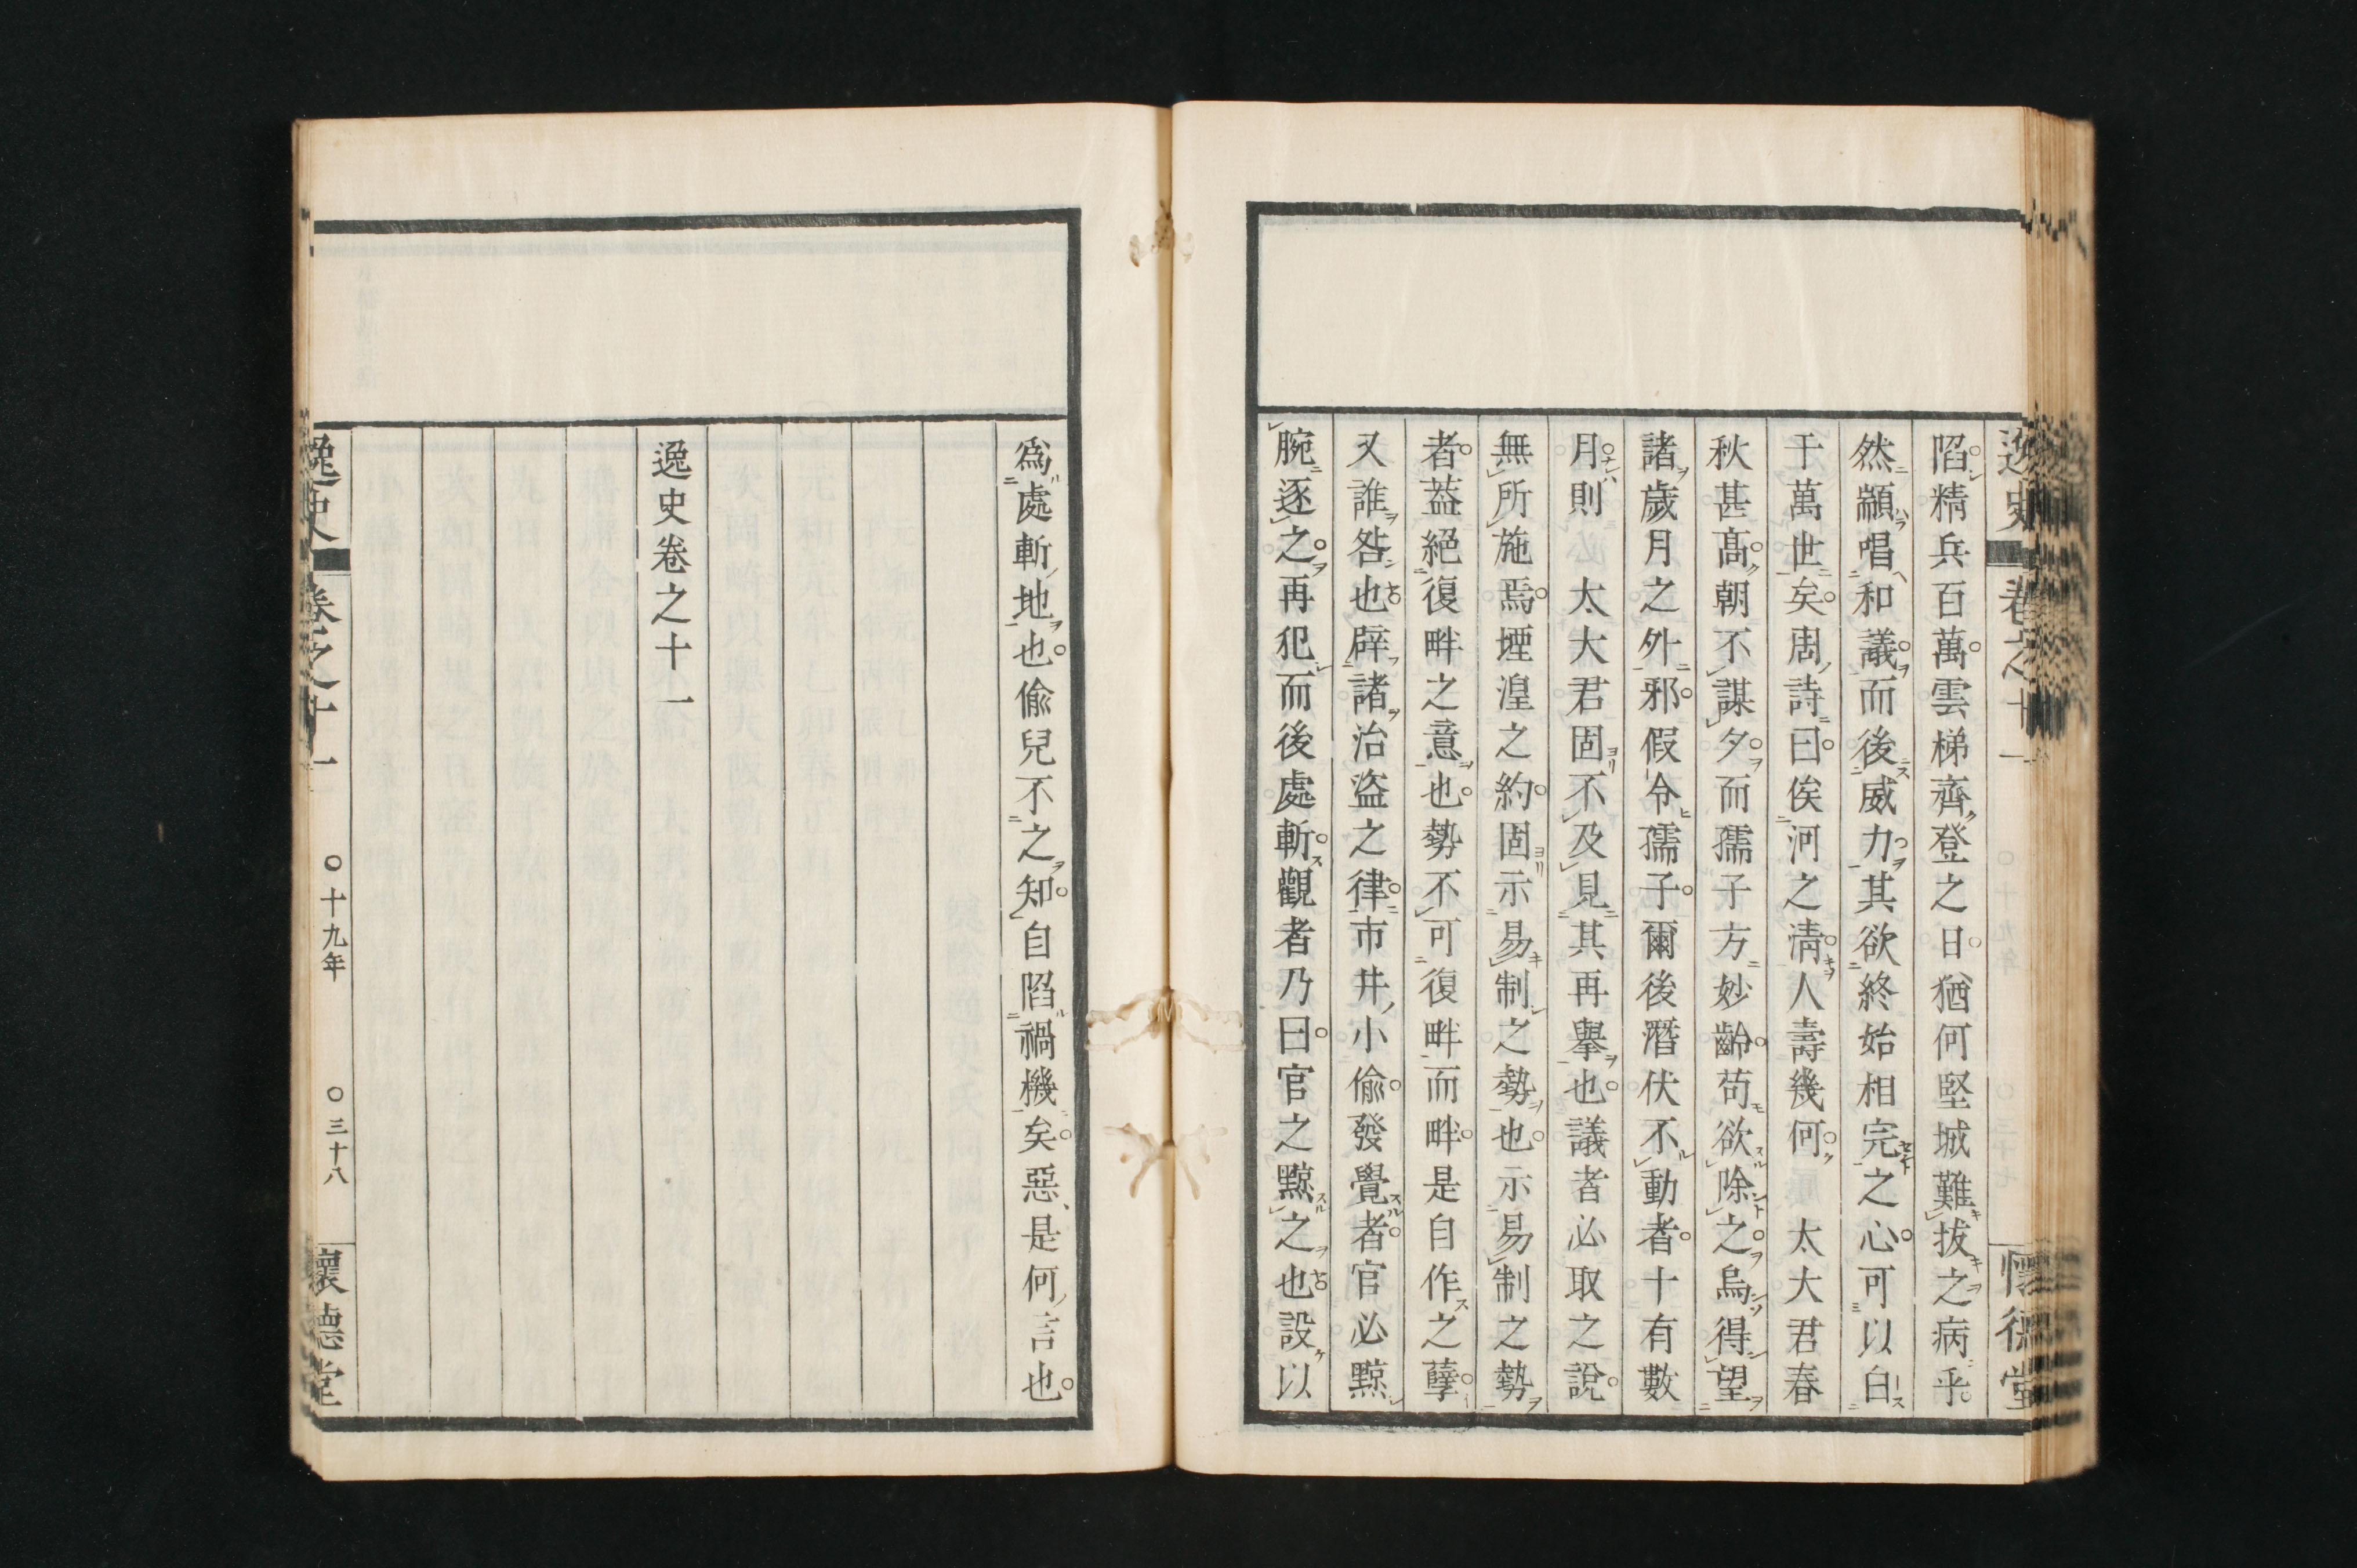 逸史 卷之十一 懷德堂
陷精兵百萬雲梯齊登之日猶何堅城難拔之病乎
然顓唱和議而後威力其欲終始相完之心可以白
于萬世矣周詩曰俟河之淸人壽幾何 太大君春
秋甚髙朝不謀夕而孺子方妙齡苟欲除之烏得望
諸歲月之外邪假令孺子爾後潛伏不動者十有數
月則 太大君固不及見其再擧也議者必取之說
無所施焉堙湟之約固示易制之勢也示易制之勢
者葢絕復畔之意也勢不可復畔而畔是自作之孽
又誰咎也辟諸治盜之律市井小偷發覺者官必黥
腕逐之再犯而後處斬觀者乃曰官之黥之也設以
爲處斬地也偷兒不之知自陷禍機矣惡是何言也
逸史卷之十一
逸史 卷之十一 ○十九年 ○三十八 懷德堂